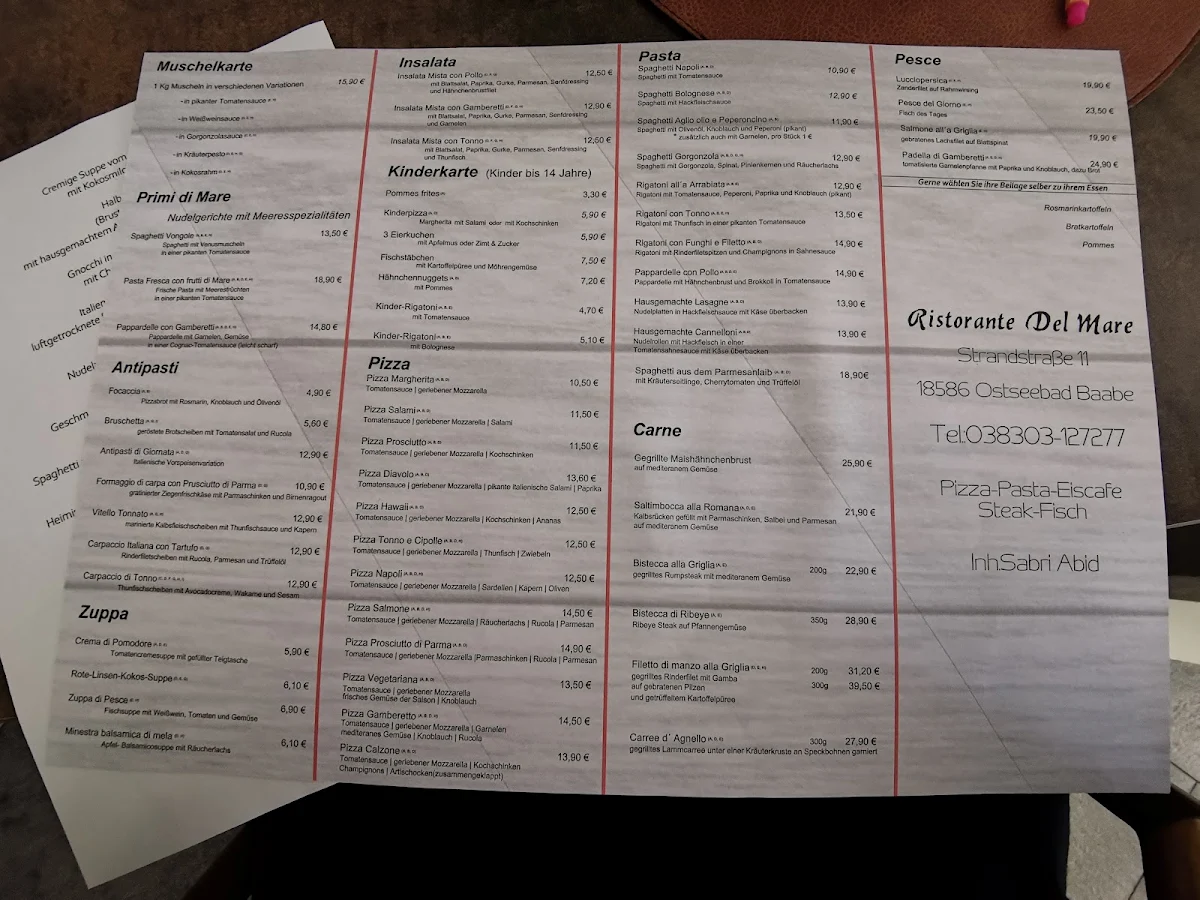 Cremige Suppe vom
mit Kokosmilc
Halb
mit hausgemachtem
Gnocchi in
mit Ch
Italien
luftgetrocknete
Nudel
Geschm
Spaghetti
Heimir
Muschelkarte
1 Kg Muscheln in verschiedenen Variationen 15,90 €
-in pikanter Tomatensauce
-in Weißweinsauce
-in Gorgonzolasauce
-in Kräuterpesto
-in Kokosrahm
Primi di Mare
Nudelgerichte mit Meeresspezialitäten
Spaghetti Vongole 13,50 €
Spaghetti mit Venusmuscheln
in einer pikanten Tomatensauce
Pasta Fresca con frutti di Mare 18,90 €
Frische Pasta mit Meeresfrüchten
in einer pikanten Tomatensauce
Pappardelle con Gamberetti 14,80 €
Pappardelle mit Garnelen, Gemüse
in einer Cognac-Tomatensauce (leicht scharf)
Antipasti
Focaccia 4,90 €
Pizzabrot mit Rosmarin, Knoblauch und Olivenöl
Bruschetta 5,60 €
geröstete Brotscheiben mit Tomatensalat und Rucola
Antipasti di Giornata 12,90 €
Italienische Vorspeisenvariation
Formaggio di carpa con Prusciutto di Parma 10,90 €
gratinierter Ziegenfrischkäse mit Parmaschinken und Birnenragout
Vitello Tonnato 12,90 €
marinierte Kalbsfleischscheiben mit Thunfischsauce und Kapern
Carpaccio Italiana con Tartufo 12,90 €
Rinderfiletscheiben mit Rucola, Parmesan und Trüffelöl
Carpaccio di Tonno 12,90 €
Thunfischscheiben mit Avocadocreme, Wakame und Sesam
Zuppa
Crema di Pomodore 5,90 €
Tomatencremesuppe mit gefüllter Teigtasche
Rote-Linsen-Kokos-Suppe 6,10 €
Zuppa di Pesce 6,90 €
Fischsuppe mit Weißwein, Tomaten und Gemüse
Minestra balsamica di mela 6,10 €
Apfel- Balsamionsuppe mit Räucherlachs
Insalata
Insalata Mista con Pollo 12,50 €
mit Blattsalat, Paprika, Gurke, Parmesan, Senfdressing
und Hähnchenbrustfilet
Insalata Mista con Gamberetti 12,90 €
mit Blattsalat, Paprika, Gurke, Parmesan, Senfdressing
und Garnelen
Insalata Mista con Tonno 12,50 €
mit Blattsalat, Paprika, Gurke, Parmesan, Senfdressing
und Thunfisch
Kinderkarte (Kinder bis 14 Jahre)
Pommes frites 3,30 €
Kinderpizza 5,90 €
Margherita mit Salami oder mit Kochschinken
3 Eierkuchen 5,90 €
mit Apfelmus oder Zimt & Zucker
Fischstäbchen 7,50 €
mit Kartoffelpüree und Möhrengemüse
Hähnchennuggets 7,20 €
mit Pommes
Kinder-Rigatoni 4,70 €
mit Tomatensauce
Kinder-Rigatoni 5,10 €
mit Bolognese
Pizza
Pizza Margherita 10,50 €
Tomatensauce | geriebener Mozzarella
Pizza Salami 11,50 €
Tomatensauce | geriebener Mozzarella | Salami
Pizza Prosciutto 11,50 €
Tomatensauce | geriebener Mozzarella | Kochschinken
Pizza Diavolo 13,60 €
Tomatensauce | geriebener Mozzarella | pikante italienische Salami | Paprika
Pizza Hawaii 12,50 €
Tomatensauce | geriebener Mozzarella | Kochschinken | Ananas
Pizza Tonno e Cipolle 12,50 €
Tomatensauce | geriebener Mozzarella | Thunfisch | Zwiebeln
Pizza Napoli 12,50 €
Tomatensauce | geriebener Mozzarella | Sardellen | Kapern | Oliven
Pizza Salmone 14,50 €
Tomatensauce | geriebener Mozzarella | Räucherlachs | Rucola | Parmesan
Pizza Prosciutto di Parma 14,90 €
Tomatensauce | geriebener Mozzarella |Parmaschinken | Rucola | Parmesan
Pizza Vegetariana 13,50 €
Tomatensauce | geriebener Mozzarella
frisches Gemüse der Saison | Knoblauch
Pizza Gamberetto 14,50 €
Tomatensauce | geriebener Mozzarella | Garnelen
mediteranes Gemüse | Knoblauch | Rucola
Pizza Calzone 13,90 €
Tomatensauce | geriebener Mozzarella | Kochschinken
Champignons | Artischocken(zusammengeklappt)
Pasta
Spaghetti Napoli 10,90 €
Spaghetti mit Tomatensauce
Spaghetti Bolognese 12,90 €
Spaghetti mit Hackfleischsauce
Spaghetti Aglio olio e Peperoncino 11,90 €
Spaghetti mit Olivenöl, Knoblauch und Peperoni (pikant)
* zusätzlich auch mit Garnelen, pro Stück 1 €
Spaghetti Gorgonzola 12,90 €
Spaghetti mit Gorgonzola, Spinat, Pinienkernen und Räucherlachs
Rigatoni all´a Arrabiata 12,90 €
Rigatoni mit Tomatensauce, Peperoni, Paprika und Knoblauch (pikant)
Rigatoni con Tonno 13,50 €
Rigatoni mit Thunfisch in einer pikanten Tomatensauce
Rigatoni con Funghi e Filetto 14,90 €
Rigatoni mit Rinderfiletspitzen und Champignons in Sahnesauce
Pappardelle con Pollo 14,90 €
Pappardelle mit Hähnchenbrust und Brokkoli in Tomatensauce
Hausgemachte Lasagne 13,90 €
Nudelplatten in Hackfleischsauce mit Käse überbacken
Hausgemachte Cannelloni 13,90 €
Nudelrollen mit Hackfleisch in einer
Tomatensahnesauce mit Käse überbacken
Spaghetti aus dem Parmesanlaib 18,90€
mit Kräuterseitlinge, Cherrytomaten und Trüffelöl
Carne
Gegrillte Maishähnchenbrust 25,90 €
auf mediteranem Gemüse
Saltimbocca alla Romana 21,90 €
Kalbsrücken gefüllt mit Parmaschinken, Salbei und Parmesan
auf mediteranem Gemüse
Bistecca alla Griglia 200g 22,90 €
gegrilltes Rumpsteak mit mediteranem Gemüse
Bistecca di Ribeye 350g 28,90 €
Ribeye Steak auf Pfannengemüse
Filetto di manzo alla Griglia 200g 31,20 €
gegrilltes Rinderfilet mit Gamba 300g 39,50 €
auf gebratenen Pilzen
und getrüffeltem Kartoffelpüree
Carree d´ Agnello 300g 27,90 €
gegrilltes Lammcarree unter einer Kräuterkruste an Speckbohnen garniert
Pesce
Lucciopersica 19,90 €
Zanderfilet auf Rahmwirsing
Pesce del Giorno 23,50 €
Fisch des Tages
Salmone all´a Griglia 19,90 €
gebratenes Lachsfilet auf Blattspinat
Padella di Gamberetti 24,90 €
tomatisierte Garnelenpfanne mit Paprika und Knoblauch, dazu Brot
Gerne wählen Sie ihre Beilage selber zu ihrem Essen
Rosmarinkartoffeln
Bratkartoffeln
Pommes
Ristorante Del Mare
Strandstraße 11
18586 Ostseebad Baabe
Tel:038303-127277
Pizza-Pasta-Eiscafe
Steak-Fisch
Inh.Sabri Abid